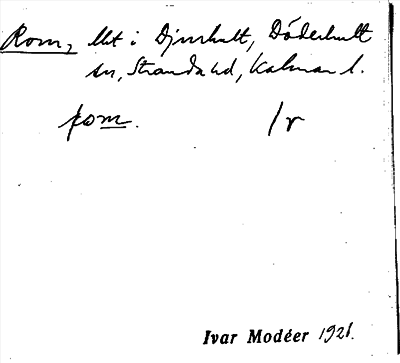 Rom, lht i Djurhult, Döderhult
sn, Stranda hd, Kalmar l.
rom. /r
Ivar Modéer 1921.